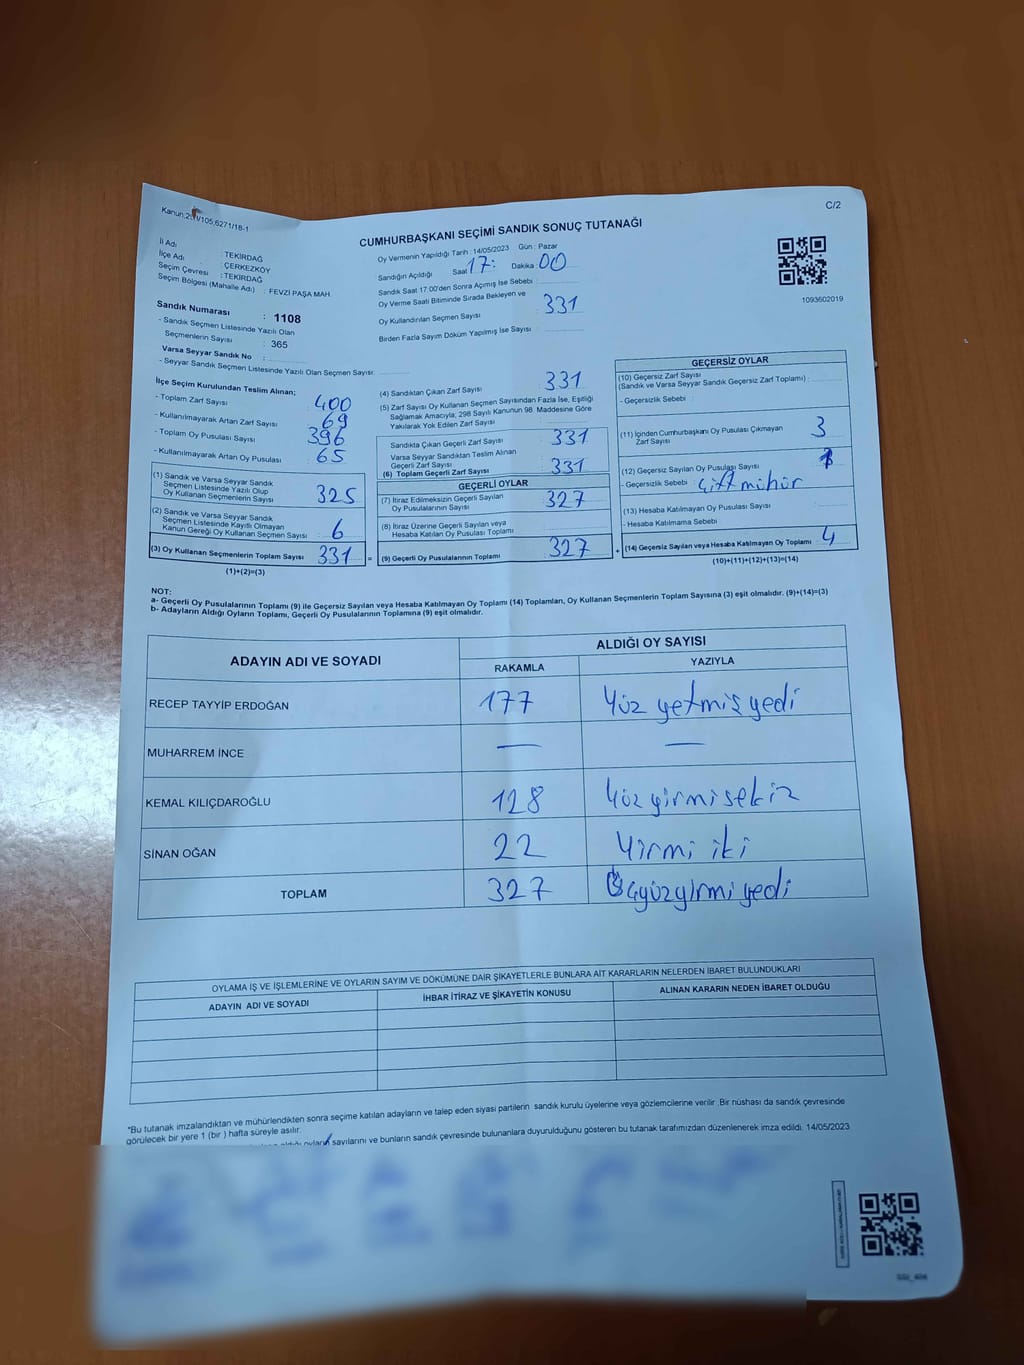 Kanun:298/105;6271/18-1
C/2
CUMHURBAŞKANI SEÇİMİ SANDIK SONUÇ TUTANAĞI
İl Adı : TEKİRDAĞ
İlçe Adı : ÇERKEZKÖY
Seçim Çevresi : TEKİRDAĞ
Seçim Bölgesi (Mahalle Adı) : FEVZİ PAŞA MAH.
Oy Vermenin Yapıldığı Tarih : 14/05/2023 Gün : Pazar
Sandığın Açıldığı Saat 17: Dakika 00
Sandık Saat 17.00'den Sonra Açımış İse Sebebi :
Oy Verme Saati Bitiminde Sırada Bekleyen ve
Oy Kullandırılan Seçmen Sayısı 331
Birden Fazla Sayım Döküm Yapılmış İse Sayısı :
1093602019
Sandık Numarası : 1108
- Sandık Seçmen Listesinde Yazılı Olan
Seçmenlerin Sayısı : 365
Varsa Seyyar Sandık No :
- Seyyar Sandık Seçmen Listesinde Yazılı Olan Seçmen Sayısı:
İlçe Seçim Kurulundan Teslim Alınan;
- Toplam Zarf Sayısı : 400
- Kullanılmayarak Artan Zarf Sayısı : 69
- Toplam Oy Pusulası Sayısı : 396
- Kullanılmayarak Artan Oy Pusulası : 65
(1) Sandık ve Varsa Seyyar Sandık
Seçmen Listesinde Yazılı Olup
Oy Kullanan Seçmenlerin Sayısı : 325
(2) Sandık ve Varsa Seyyar Sandık
Seçmen Listesinde Kayıtlı Olmayan
Kanun Gereği Oy Kullanan Seçmen Sayısı : 6
(3) Oy Kullanan Seçmenlerin Toplam Sayısı 331 =
(1)+(2)=(3)
(4) Sandıktan Çıkan Zarf Sayısı : 331
(5) Zarf Sayısı Oy Kullanan Seçmen Sayısından Fazla İse, Eşitliği
Sağlamak Amacıyla; 298 Sayılı Kanunun 98. Maddesine Göre
Yakılarak Yok Edilen Zarf Sayısı :
Sandıkta Çıkan Geçerli Zarf Sayısı : 331
Varsa Seyyar Sandıktan Teslim Alınan
Geçerli Zarf Sayısı :
(6) Toplam Geçerli Zarf Sayısı 331
GEÇERLİ OYLAR
(7) İtiraz Edilmeksizin Geçerli Sayılan
Oy Pusulalarının Sayısı : 327
(8) İtiraz Üzerine Geçerli Sayılan veya
Hesaba Katılan Oy Pusulası Toplamı :
(9) Geçerli Oy Pusulalarının Toplamı : 327 +
GEÇERSİZ OYLAR
(10) Geçersiz Zarf Sayısı
(Sandık ve Varsa Seyyar Sandık Geçersiz Zarf Toplamı) :
- Geçersizlik Sebebi :
(11) İçinden Cumhurbaşkanı Oy Pusulası Çıkmayan
Zarf Sayısı : 3
(12) Geçersiz Sayılan Oy Pusulası Sayısı : 1
- Geçersizlik Sebebi : çift mühür
(13) Hesaba Katılmayan Oy Pusulası Sayısı :
- Hesaba Katılmama Sebebi :
(14) Geçersiz Sayılan veya Hesaba Katılmayan Oy Toplamı : 4
(10)+(11)+(12)+(13)=(14)
NOT:
a- Geçerli Oy Pusulalarının Toplamı (9) ile Geçersiz Sayılan veya Hesaba Katılmayan Oy Toplamı (14) Toplamları, Oy Kullanan Seçmenlerin Toplam Sayısına (3) eşit olmalıdır. (9)+(14)=(3)
b- Adayların Aldığı Oyların Toplamı, Geçerli Oy Pusulalarının Toplamına (9) eşit olmalıdır.
ADAYIN ADI VE SOYADI
ALDIĞI OY SAYISI
RAKAMLA YAZIYLA
RECEP TAYYİP ERDOĞAN 177 Yüz yetmiş yedi
MUHARREM İNCE — —
KEMAL KILIÇDAROĞLU 128 Yüz yirmi sekiz
SİNAN OĞAN 22 Yirmi iki
TOPLAM 327 Üçyüzyirmi yedi
OYLAMA İŞ VE İŞLEMLERİNE VE OYLARIN SAYIM VE DÖKÜMÜNE DAİR ŞİKAYETLERLE BUNLARA AİT KARARLARIN NELERDEN İBARET BULUNDUKLARI
ADAYIN ADI VE SOYADI İHBAR İTİRAZ VE ŞİKAYETİN KONUSU ALINAN KARARIN NEDEN İBARET OLDUĞU
*Bu tutanak imzalandıktan ve mühürlendikten sonra seçime katılan adayların ve talep eden siyasi partilerin sandık kurulu üyelerine veya gözlemcilerine verilir .Bir nüshası da sandık çevresinde
görülecek bir yere 1 (bir ) hafta süreyle asılır.
aldığı oyların sayılarını ve bunların sandık çevresinde bulunanlara duyurulduğunu gösteren bu tutanak tarafımızdan düzenlenerek imza edildi. 14/05/2023